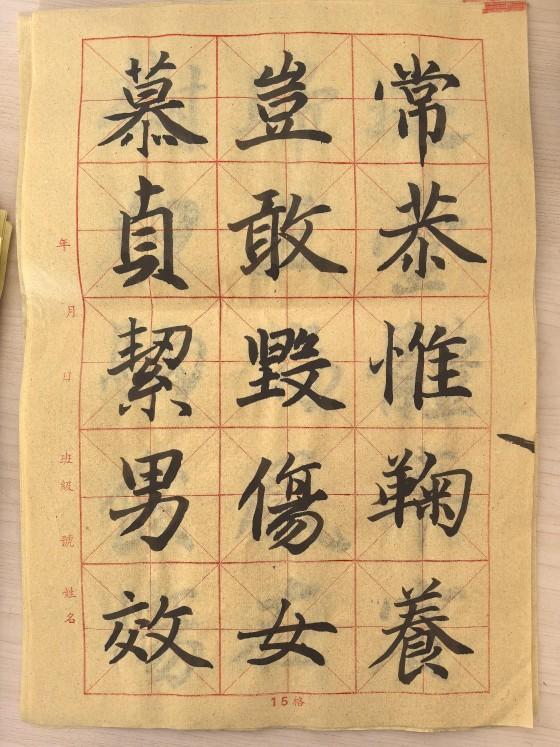 常恭惟鞠養
豈敢毀傷女
慕貞絜男效
年 月 日 班級 號 姓名
15格